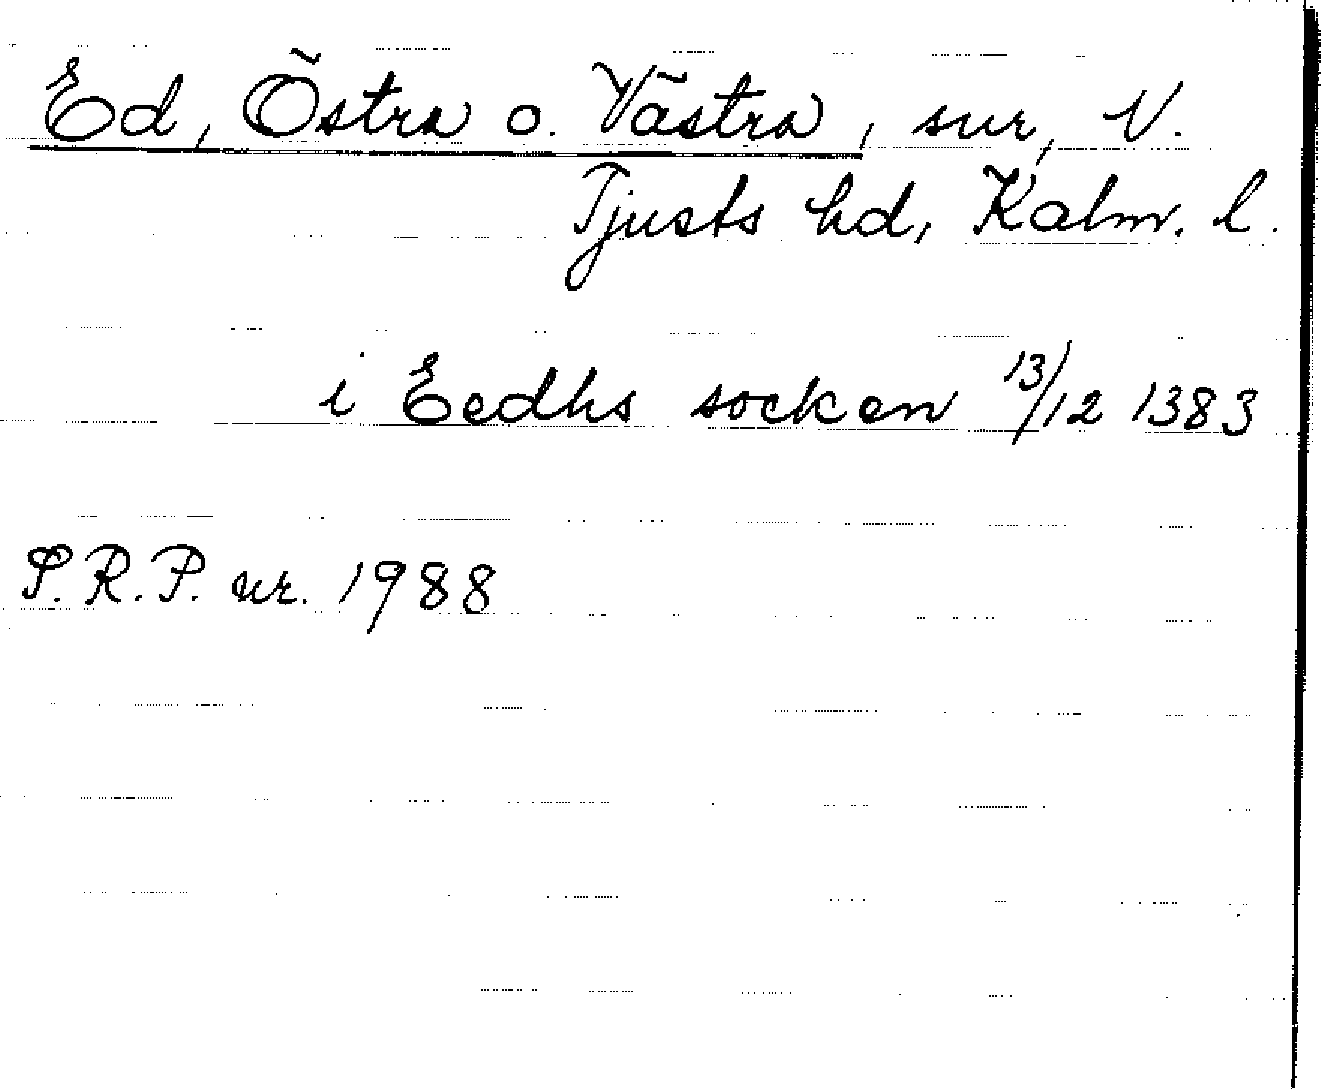 Ed, Östra o. Västra, snr, N.
Tjusts hd, Kalm. l.
i Eedhs socken 13/12 1383
S.R.P. nr. 1988